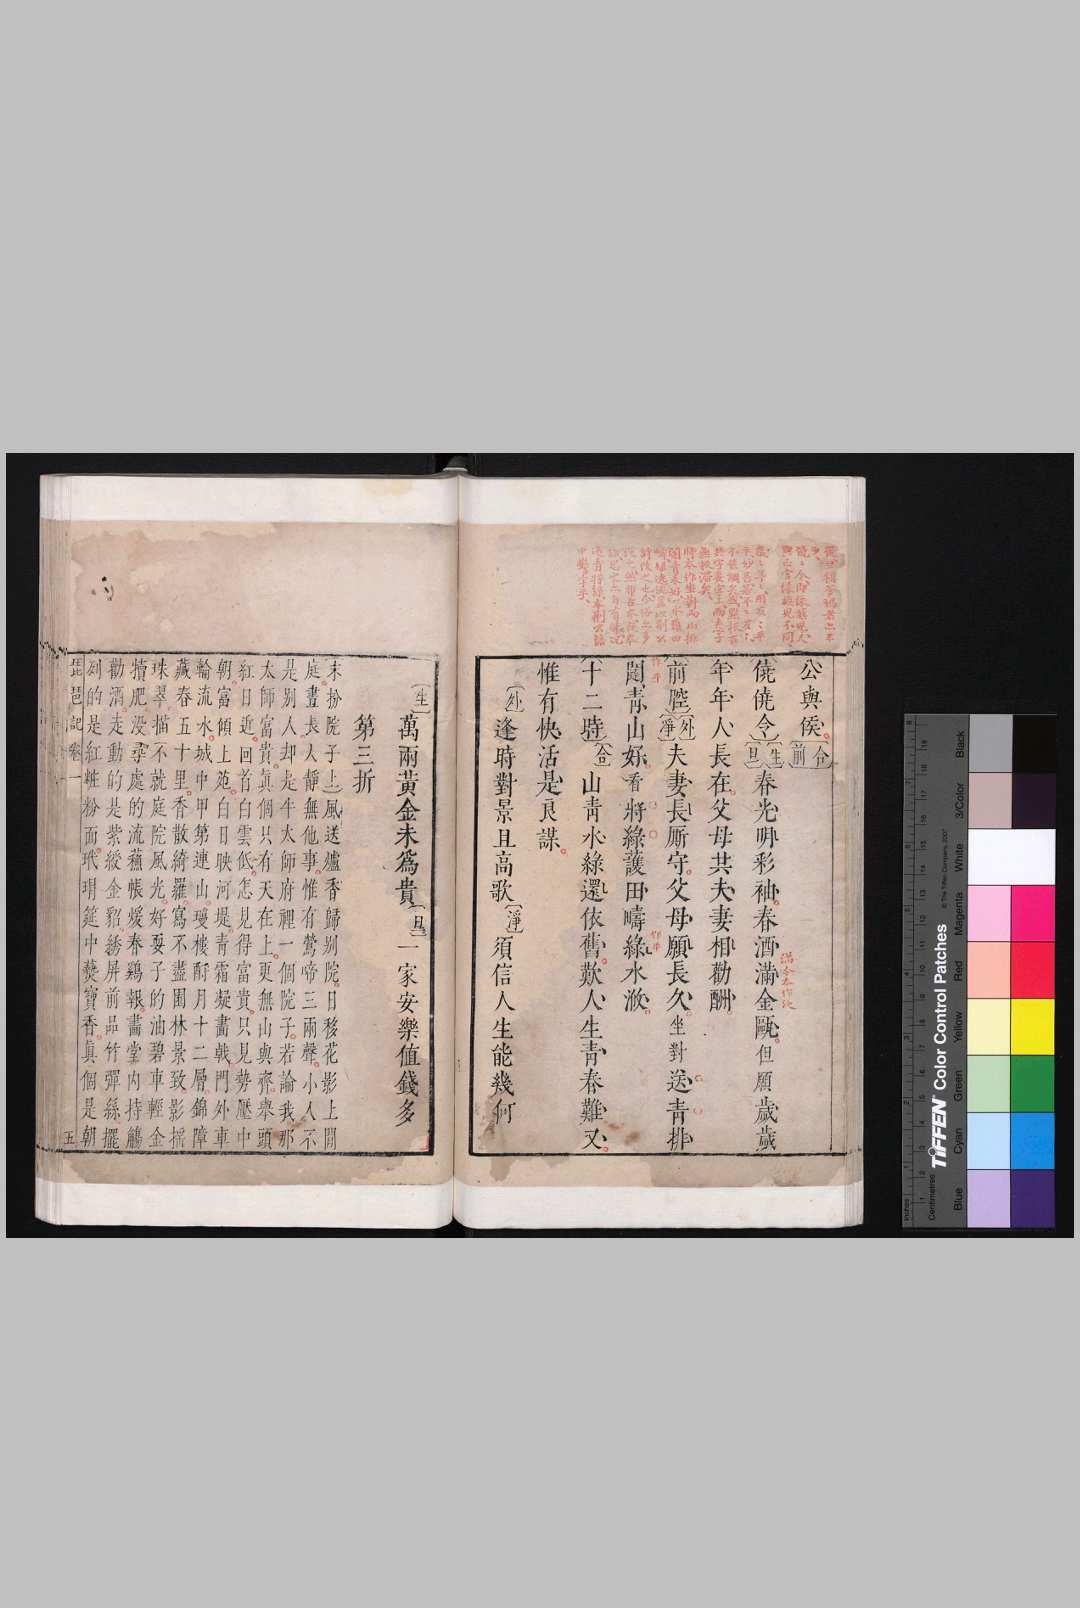 公與侯合前
僥僥令生旦春光明彩袖春酒滿金甌但願歲歲
年年人長在父母共夫妻相勸酬
前腔外淨夫妻長厮守父母願長久坐對送青排
闥青山好看將綠護田疇綠水遶
十二時合山青水綠還依舊歎人生青春難又
惟有快活是良謀
外逢時對景且高歌淨須信人生能幾何
生萬兩黃金未爲貴旦一家安樂值錢多
第三折
末扮院子上風送爐香歸別院日移花影上閒
庭晝長人靜無他事惟有鶯啼三兩聲小人不
是別人却是牛太師府裡一個院子若論我那
太師富貴眞個只有天在上更無山與齊舉頭
紅日近回首白雲低怎見得富貴只見勢壓中
朝富傾上苑白日映河堤青霜凝畫戟門外車
輪流水城中甲第連山瓊樓酧月十二層錦障
藏春五十里香散綺羅寫不盡園林景致影搖
珠翠描不就庭院風光好耍子的油碧車輕金
犢肥没尋處的流蘇帳煖春鷄報畵堂内持觴
勸酒走動的是紫綬金貂綉屏前品竹彈絲擺
列的是紅粧粉面玳瑁筵中爇寶香眞個是朝
琵琶記卷一
五
TIFFEN Color Control Patches
© The Tiffen Company, 2007
Centimetres
Inches
Blue
Cyan
Green
Yellow
Red
Magenta
White
3/Color
Black